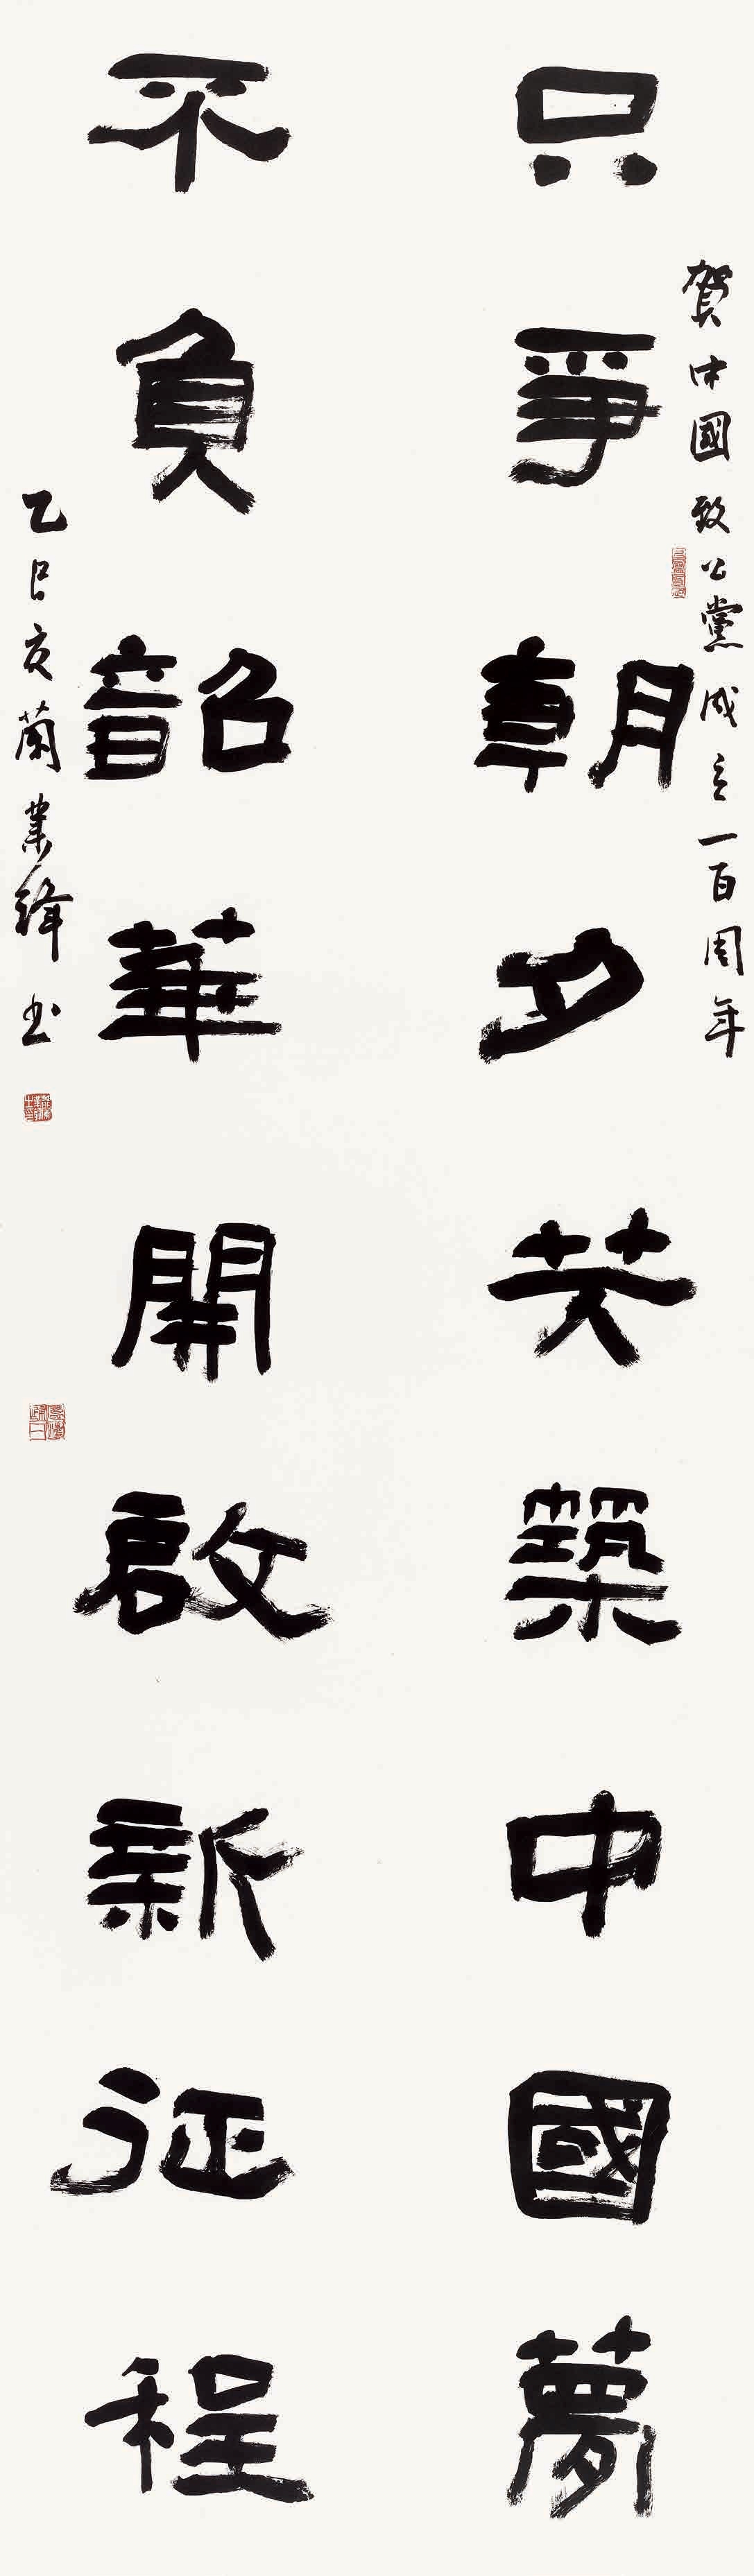 賀中國致公黨成立一百周年
只爭朝夕共築中國夢
不負韶華開啟新征程
乙巳夏蘭業鋒書